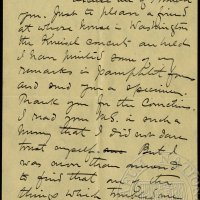 you. Just to please a friend
at whose house in Washington
the Kneisel concerts are held
I have printed some of my
remarks in pamphlet form
and send you a specimen.
Thank you for the Corrections.
I read your M.S. in such a
hurry that I did not dare
trust myself. But I
was more than amused
to find that
things which